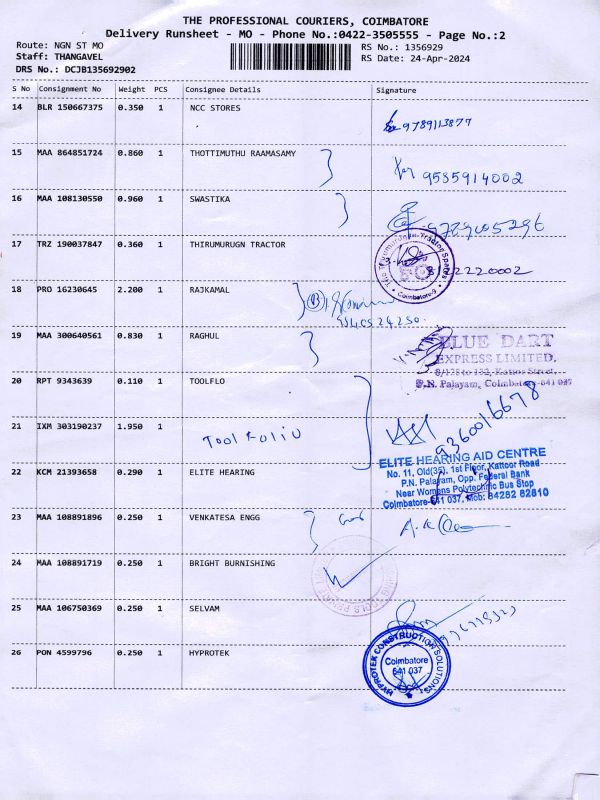 THE PROFESSIONAL COURIERS, COIMBATORE
Delivery Runsheet - MO - Phone No.:0422-3505555 - Page No.:2
Route: NGN ST MO
RS No.: 1356929
Staff: THANGAVEL
RS Date: 24-Apr-2024
DRS No.: DCJB135692902
S No Consignment No Weight PCS Consignee Details Signature
14 BLR 150667375 0.350 1 NCC STORES
9789113877
15 MAA 864851724 0.860 1 THOTTIMUTHU RAAMASAMY
9585914002
16 MAA 108130550 0.960 1 SWASTIKA
9789005296
17 TRZ 190037847 0.360 1 THIRUMURUGN TRACTOR
Coimbatore-9
8122220002
18 PRO 16230645 2.200 1 RAJKAMAL
19 MAA 300640561 0.830 1 RAGHUL
BLUE DART
EXPRESS LIMITED,
8/128 to 132, Kattoor Street,
P.N. Palayam, Coimbatore-641 037
20 RPT 9343639 0.110 1 TOOLFLO
21 IXM 303190237 1.950 1 Tool Folio
9360016678
22 KCM 21393658 0.290 1 ELITE HEARING
ELITE HEARING AID CENTRE
No. 11, Old(35), 1st Floor, Kattoor Road
P.N. Palayam, Opp. Federal Bank
Near Womens Polytechnic Bus Stop
Coimbatore-641 037, Mob: 84282 82810
23 MAA 108891896 0.250 1 VENKATESA ENGG
24 MAA 108891719 0.250 1 BRIGHT BURNISHING
25 MAA 106750369 0.250 1 SELVAM
26 PON 4599796 0.250 1 HYPROTEK
HYPROTEK CONSTRUCTION SOLUTIONS
Coimbatore
641 037